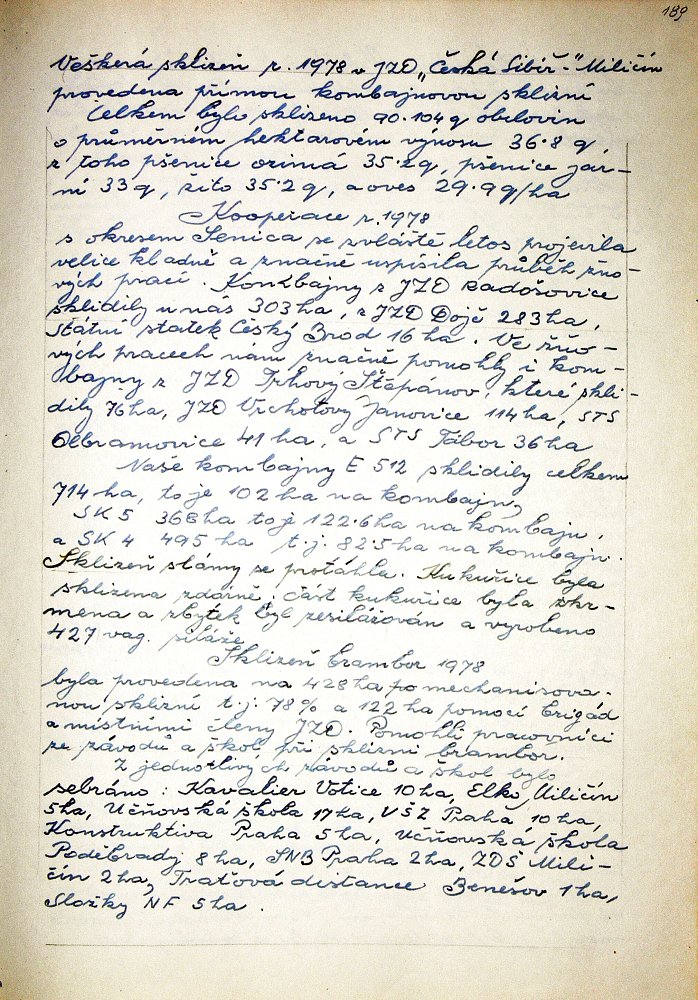 189
Veškerá sklizeň r. 1978 v JZD „Česká Sibiř-" Miličín
provedena přímou kombajnovou sklizní
Celkem bylo sklizeno 90.104 q obilovin
o průměrném hektarovém výnosu 36.8 q,
z toho pšenice ozimá 35.2 q, pšenice jar-
ní 33 q, žito 35.2 q, a oves 29.9 q/ha
Kooperace r. 1978
s okresem Senica se zvláště letos projevila
velice kladně a značně uspíšila průběh žňo-
vých prací. Kombajny z JZD Radošovice
sklidily u nás 303 ha, z JZD Dojč 283 ha,
Státní statek Český Brod 16 ha. Ve žňo-
vých pracech nám značně pomohly i kom-
bajny z JZD Trhový Štěpánov, které skli-
dily 76 ha, JZD Vrchotovy Janovice 114 ha, STS
Olbramovice 41 ha, a STS Tábor 36 ha
Naše kombajny E 512 sklidily celkem
714 ha, to je 102 ha na kombajn,
SK 5 368 ha to je 122.6 ha na kombajn,
a SK 4 495 ha t.j. 82.5 ha na kombajn.
Sklizeň slámy se protáhla. Kukuřice byla
sklizena zdárně; část kukuřice byla zkr-
mena a zbytek byl zesilážován a vyrobeno
427 vag. siláže
Sklizeň brambor 1978
byla provedena na 428 ha po mechanisova-
nou sklizní t.j. 78% a 122 ha pomocí brigád
a místními členy JZD. Pomohli pracovníci
ze závodů a škol při sklizni brambor.
Z jednotlivých závodů a škol bylo
sebráno: Kavalier Votice 10 ha, Elko Miličín
5 ha, Učňovská škola 17 ha, VŠZ Praha 10 ha,
Konstruktiva Praha 5 ha, Učňovská škola
Poděbrady 8 ha, SNB Praha 2 ha, ZDŠ Mili-
čín 2 ha, Traťová distance Benešov 1 ha,
Složky NF 5 ha.